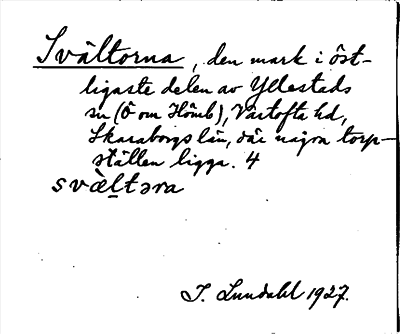 Svältorna, den mark i öst-
ligaste delen av Yllestads
sn (Ö om Hömb), Vartofta hd,
Skaraborgs län, där några torp-
ställen ligga. 4
svæ̀ltɔra
I. Lundahl 1927.